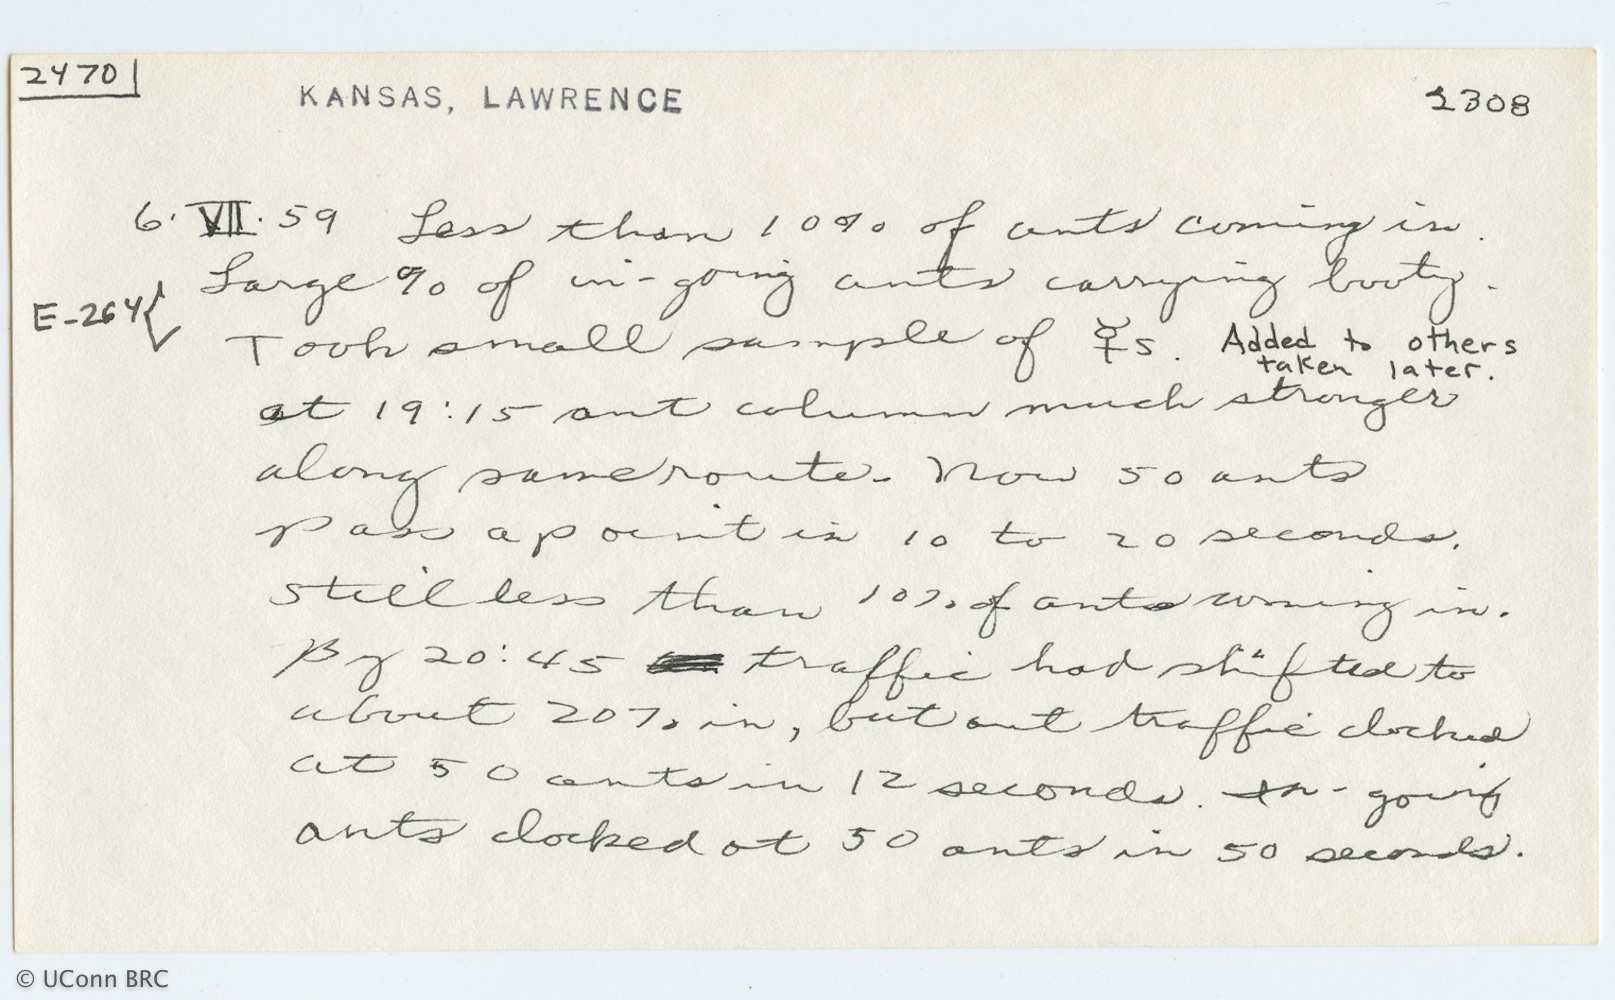 2470
KANSAS, LAWRENCE
2308
6. VII. 59 Less than 10% of ants coming in.
Large % of in-going ants carrying booty.
E-264
Took small sample of ☿s. Added to others
taken later.
at 19:15 ant column much stronger
along same route. Now 50 ants
pass a point in 10 to 20 seconds.
Still less than 10% of ants coming in.
By 20:45 traffic had shifted to
about 20% in, but out traffic clocked
at 50 ants in 12 seconds. In-going
ants clocked at 50 ants in 50 seconds.
© UConn BRC